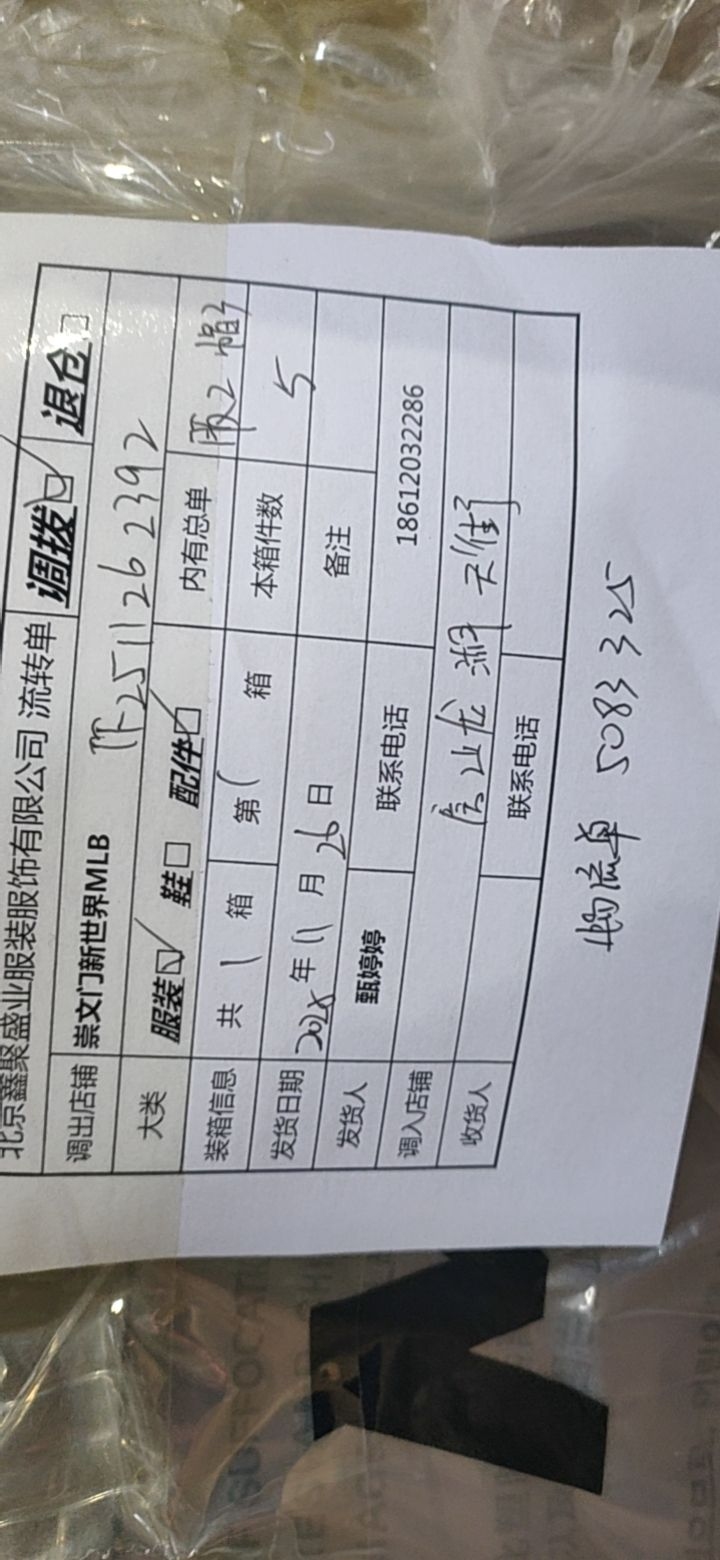 北京鑫聚盛业服装服饰有限公司 流转单 调拨☑ 退仓□
调出店铺 崇文门新世界MLB PF2511262392
大类 服装☑ 鞋□ 配件☑ 内有总单 服2 帽3
装箱信息 共 1 箱 第 1 箱 本箱件数 5
发货日期 2025年11月26日 备注
发货人 甄婷婷 联系电话 18612032286
调入店铺 房山龙湖天街
收货人 联系电话
物流单 5083325